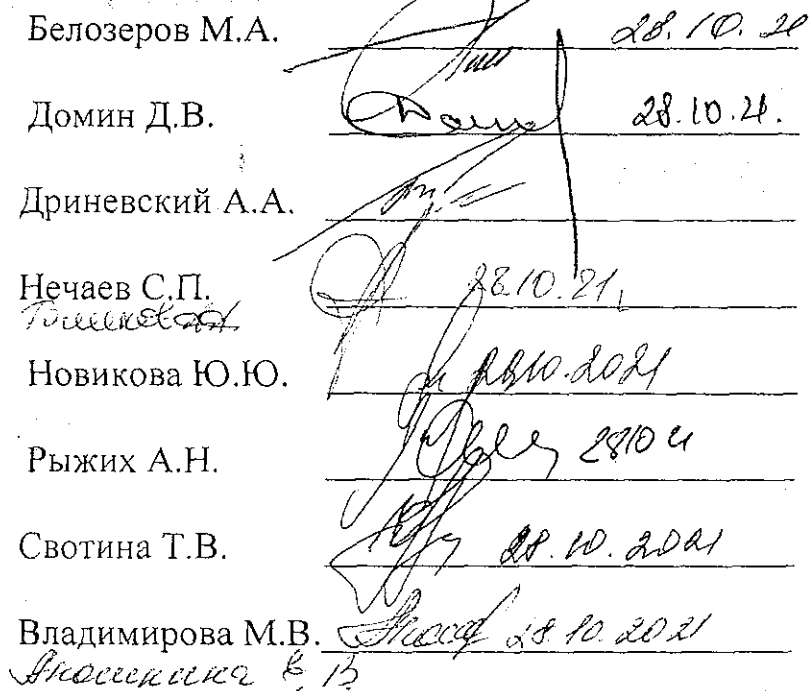 Белозеров М.А. 28.10.21
Домин Д.В. 28.10.21.
Дриневский А.А.
Нечаев С.П. 28.10.21
Новикова Ю.Ю. 28.10.2021
Рыжих А.Н. 281021
Свотина Т.В. 28.10.2021
Владимирова М.В. 28.10.2021
Аношкина Е.В